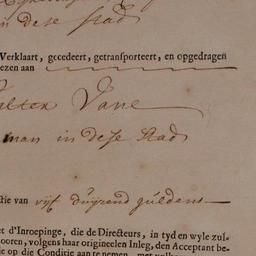 in dese stad
Verklaart, gecedeert, getransporteert, en opgedragen
ezen aan
alter Vane
man in dese Stad
tie van vijf duijzend guldens
t d'Inroepinge, die de Directeurs, in tyd en wyle zul-
ooren, volgens haar origineelen Inleg, den Acceptant be-
ie op die Conditie aan te nemen